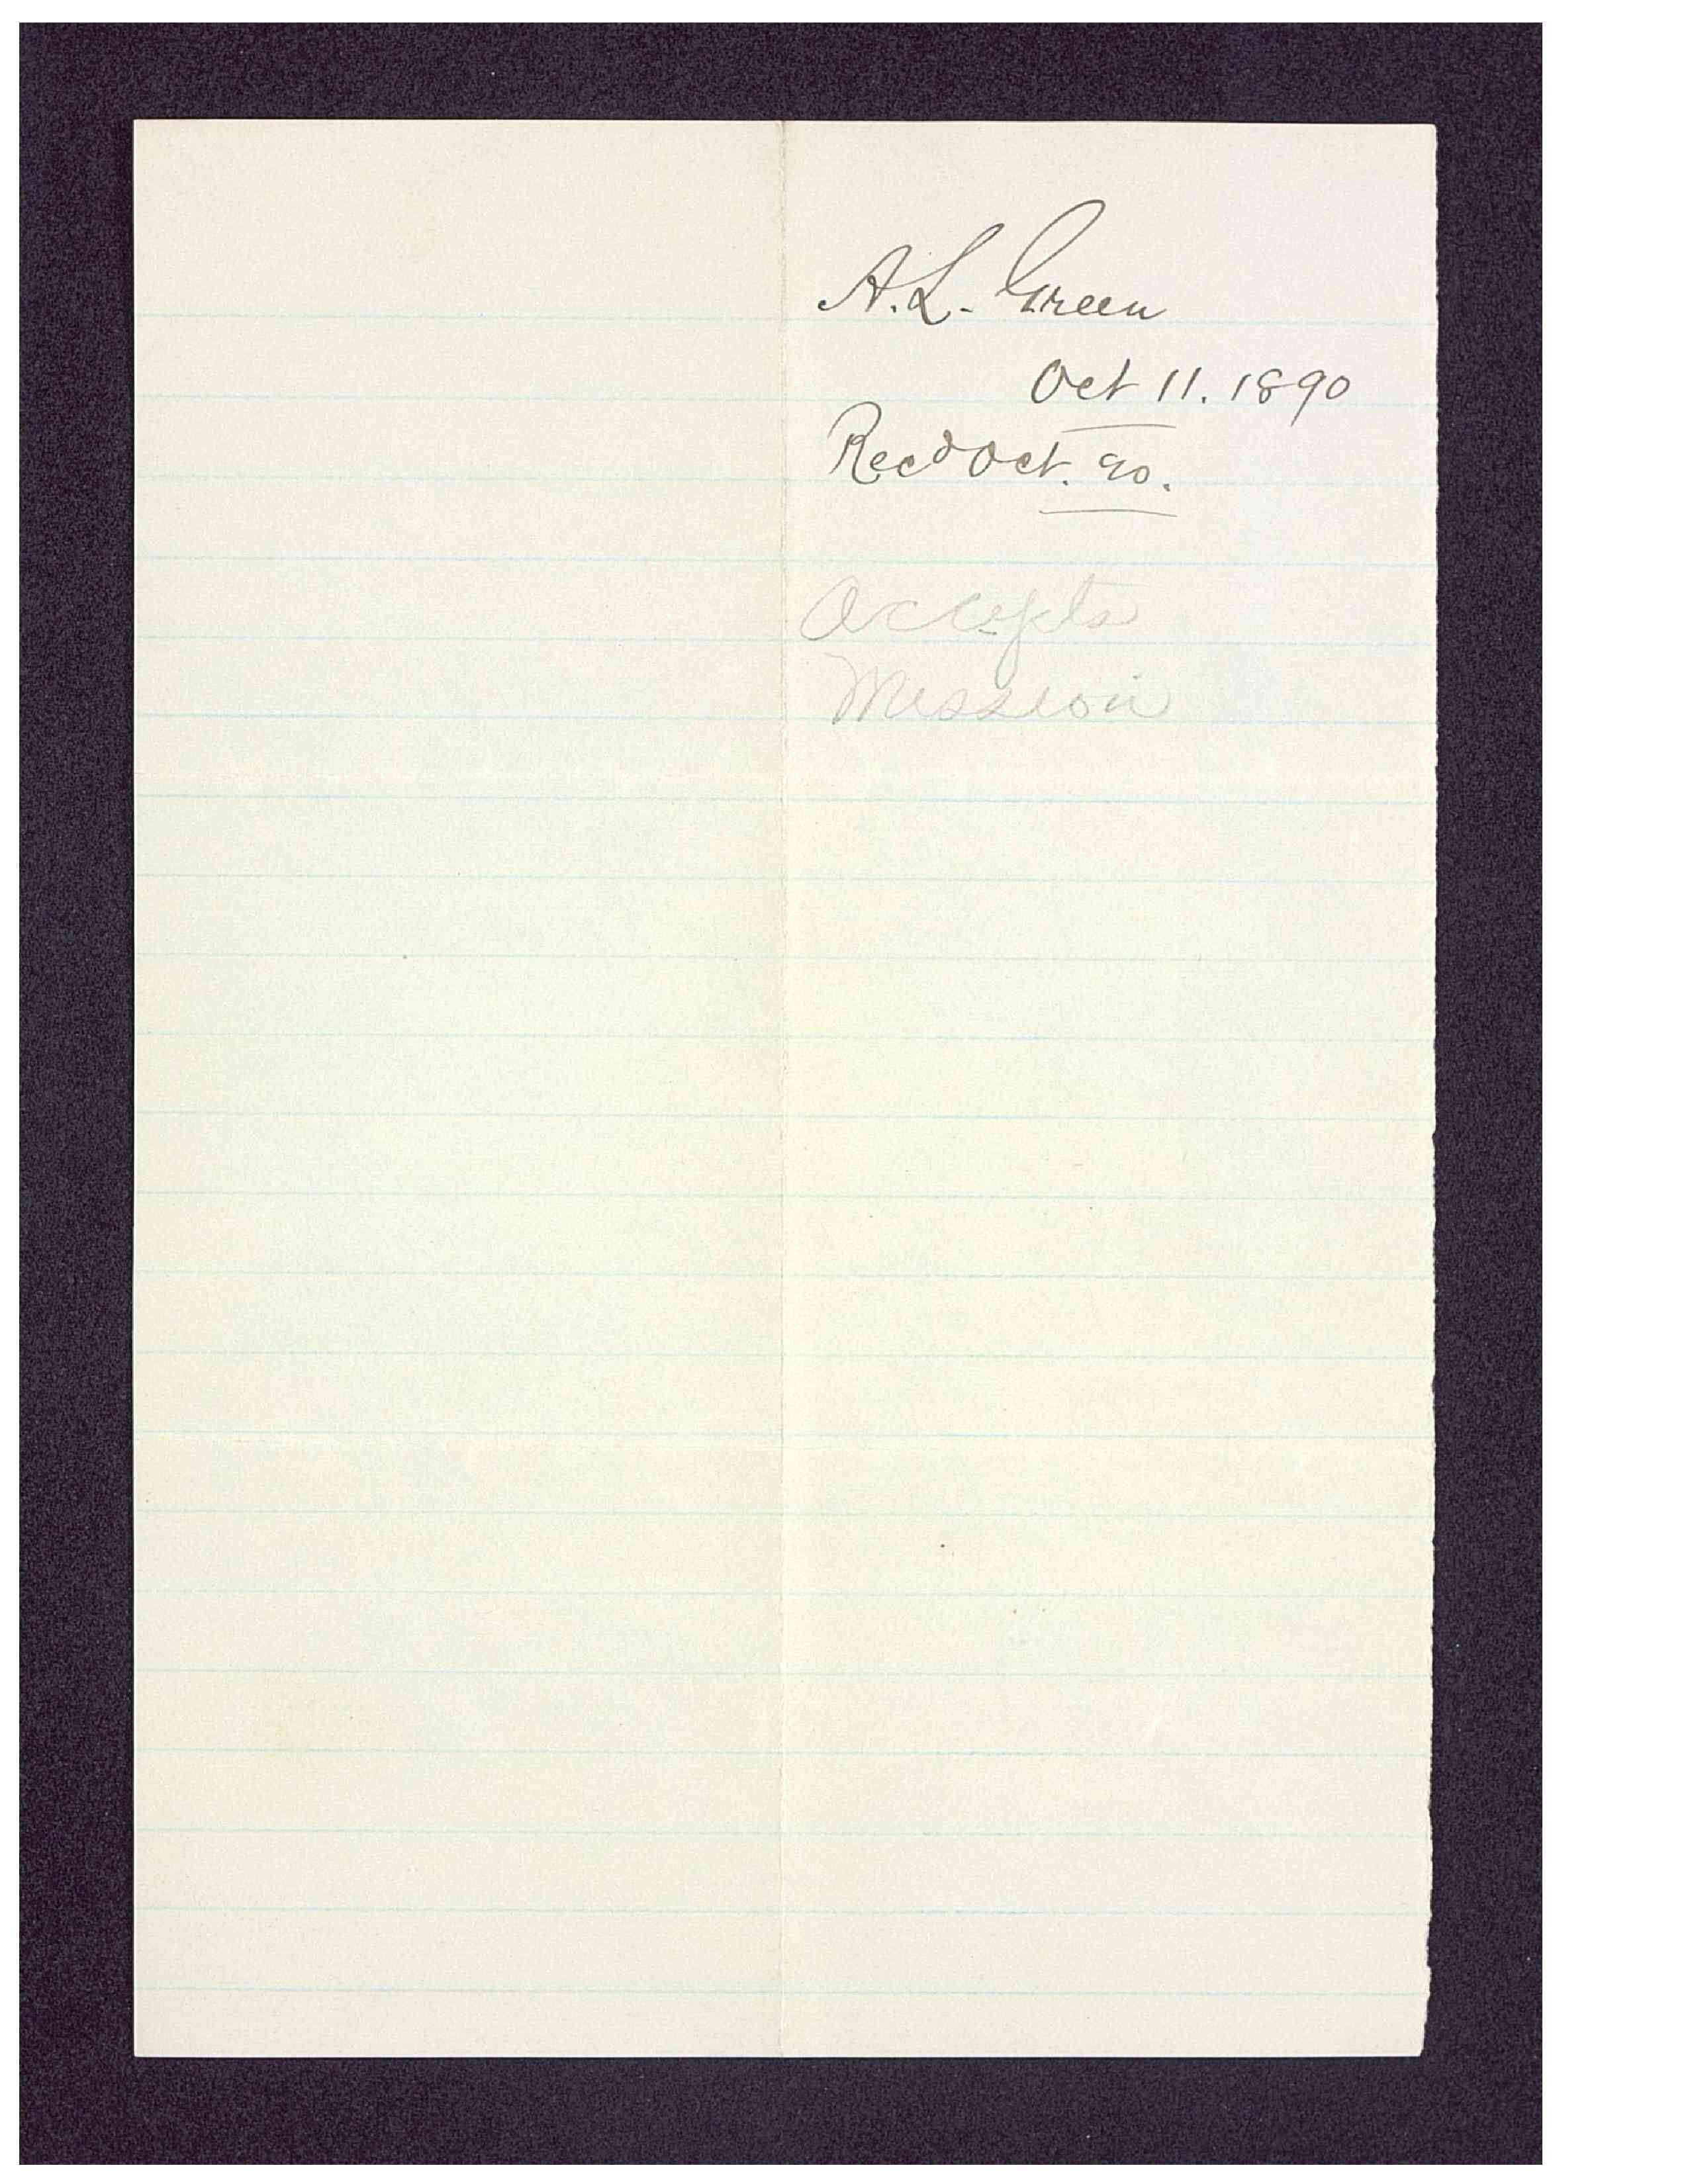 A. L. Green
Oct 11. 1890
Recd Oct. 20.
Accepts
Mission